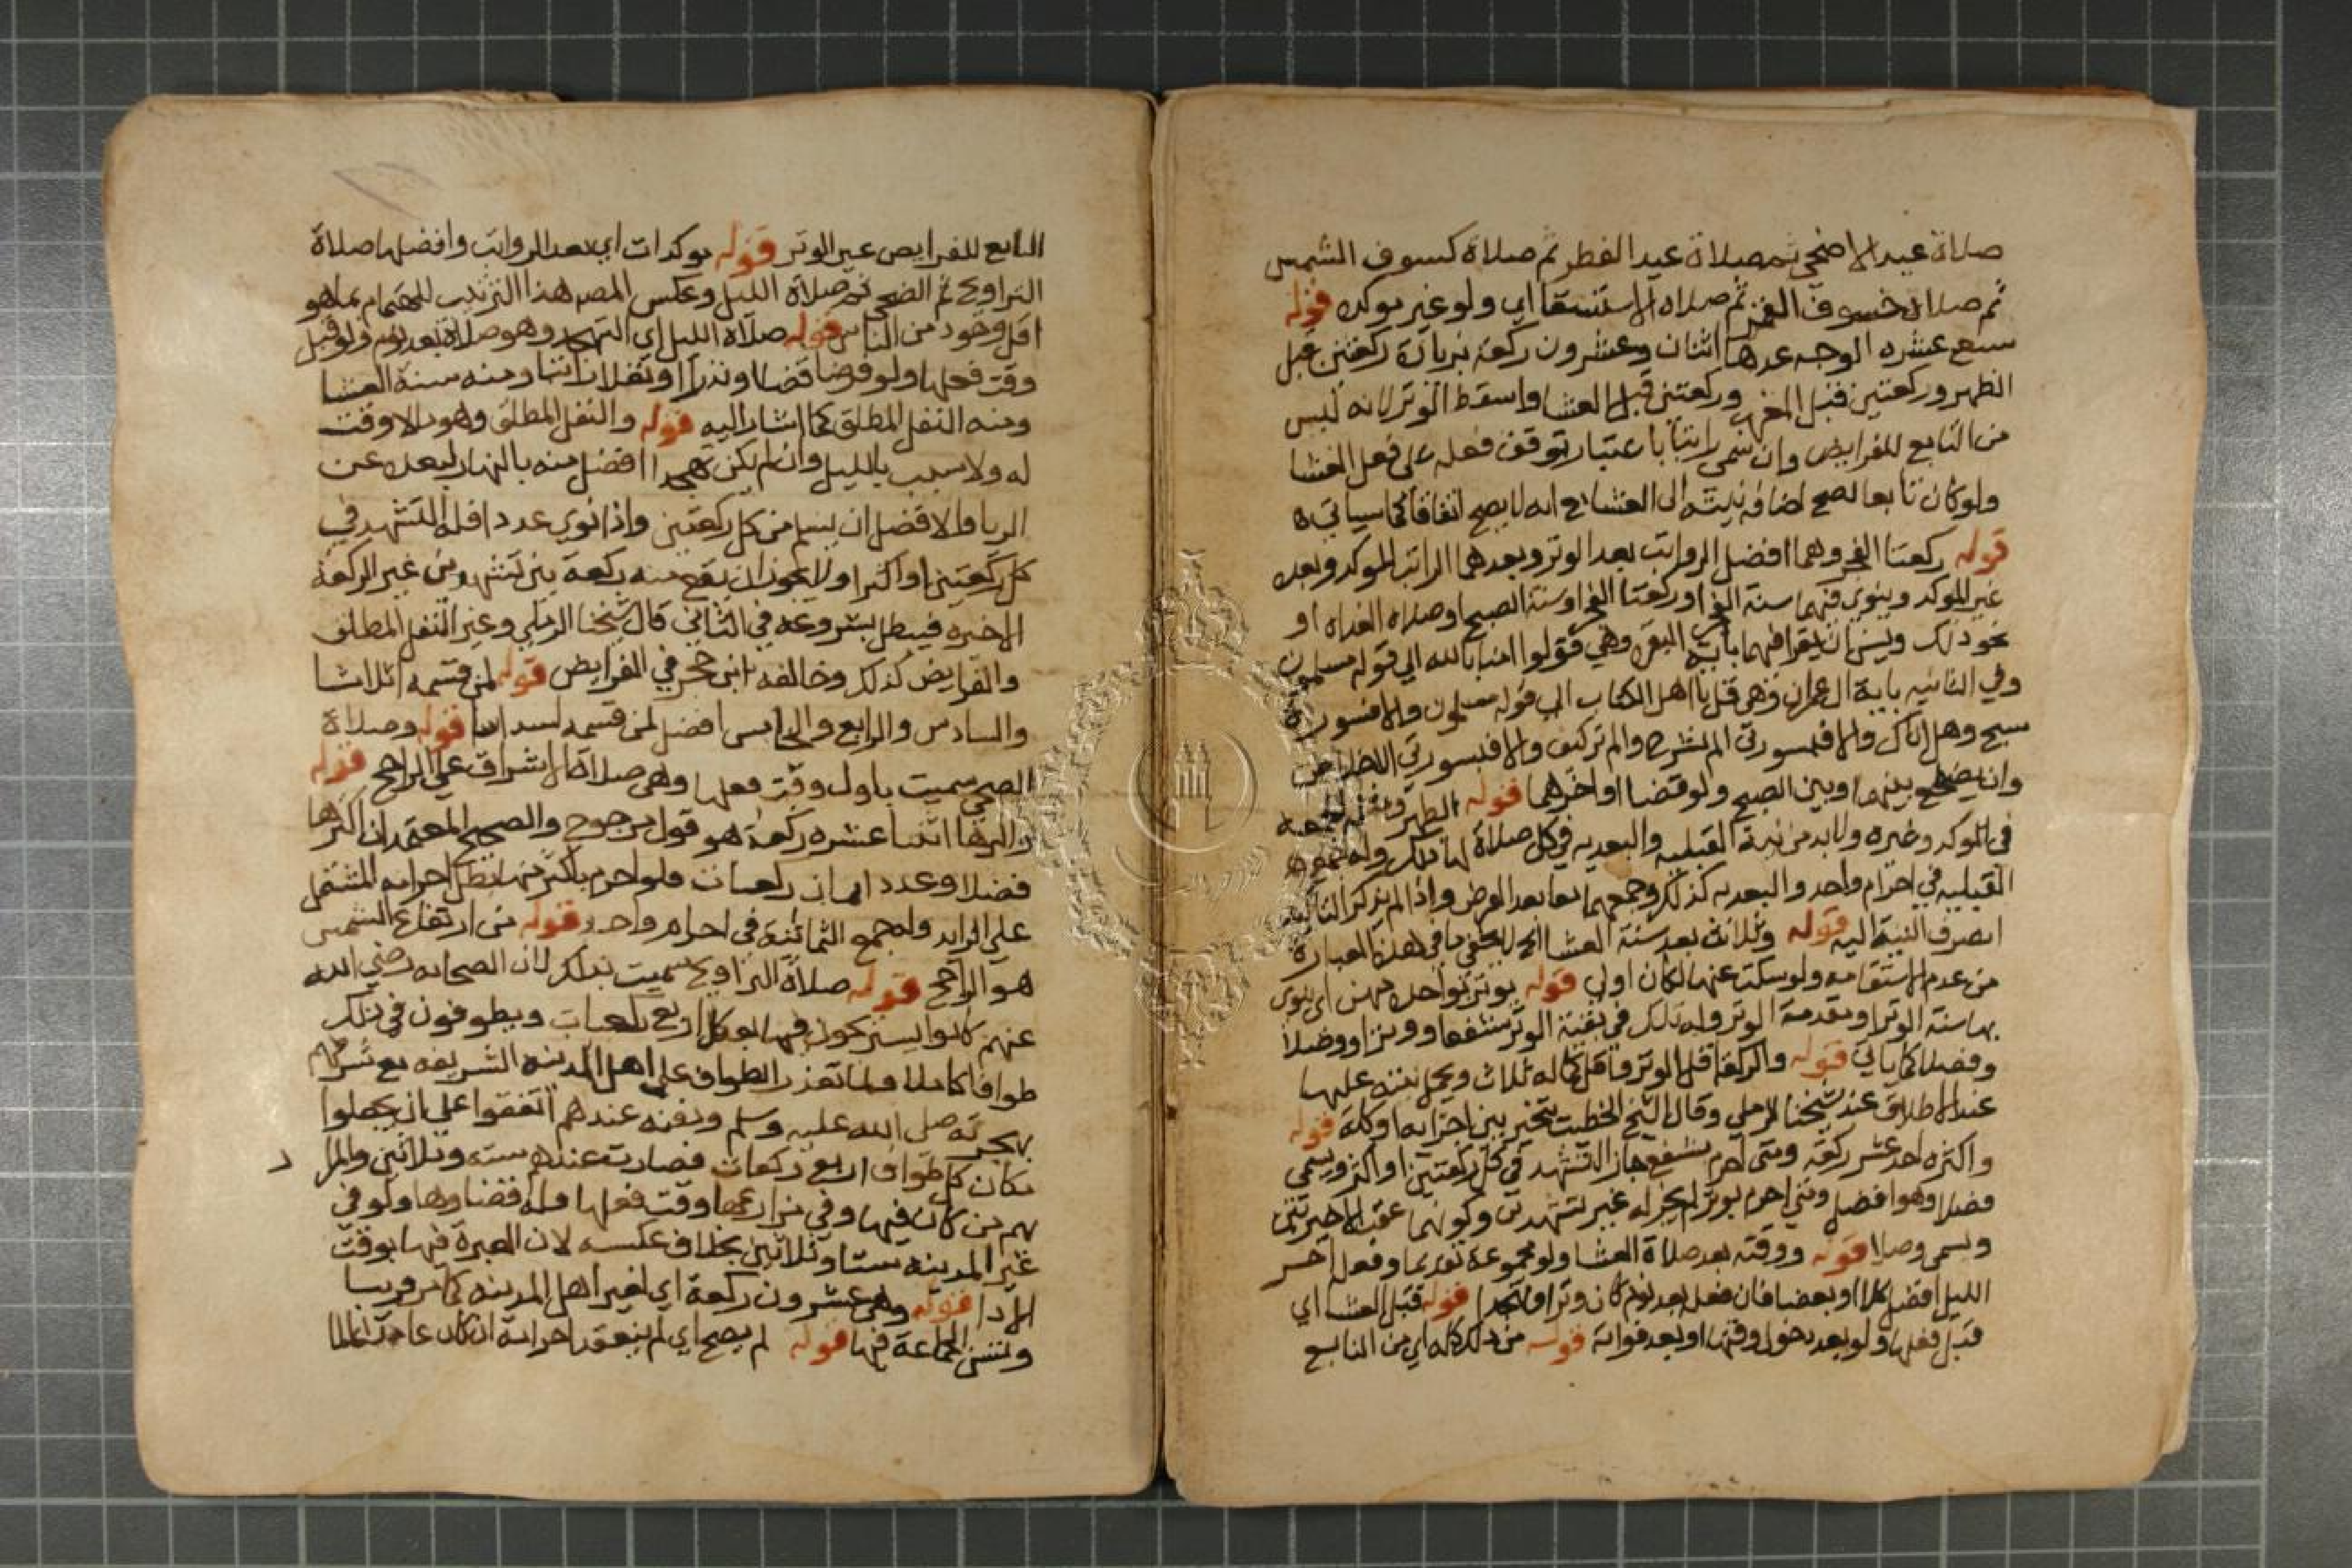 صلاة عيد الاضحى ثم صلاة عيد الفطر ثم صلاة كسوف الشمس
ثم صلاة خسوف القمر ثم صلاة الاستسقا اي ولو غير موكده قوله
سبع عشره الوجه عدها اثنان وعشرون ركعة بزيادة ركعتين قبل
الظهر وركعتين قبل المغرب وركعتين قبل العشا واسقط الوتر لانه ليس
من التابع للفرايض وان سمي راتبا باعتبار توقف فعله على فعل العشا
ولو كان تابعا لصح اضافة نيته الى العشا مع انه لا يصح اتفاقا كما سياتي
قوله ركعتا الفجر وهما افضل الرواتب بعد الوتر وبعدهما الراتب الموكد وبعده
غير الموكد وينوي فيهما سنة الفجر او ركعتا الفجر او سنة الصبح او صلاة الغداه او
نحو ذلك ويسن ان يقرا فيهما باية البقره وهي قولوا امنا بالله الى قوله مسلمون
وفي الثانيه باية ال عمران وهي قل يا اهل الكتاب الى قوله مسلمون والا فسورة
سبح وهل اتاك والا فسورتي الم نشرح والم تر كيف والا فسورتي الاخلاص
وان يضطجع بينهما وبين الصبح ولو قضا او اخرهما قوله الظهر ومثله الجمعه
في الموكد وغيره ولابد من نية القبليه والبعديه في كل صلاة لها ذلك وله جمع
القبليه في احرام واحد والبعديه كذلك وجمعهما معا بعد الفرض واذا لم يذكر التاكيد
انصرف النية اليه قوله وثلاث بعد سنة العشا الخ لا يخفى ما في هذه العبارة
من عدم الاستقامه ولو سكت عنها لكان اولى قوله يوتر بواحدة منهن اي ينوي
بها سنة الوتر او مقدمة الوتر وله ذلك في بقية الوتر شفعا ووترا ووصلا
وفصلا كما ياتي قوله والركعة اقل الوتر واقل كماله ثلاث ويحمل نيته عليها
عند الاطلاق عند شيخنا الرملي وقال الشيخ الخطيب يتخير بين اجزايه او كله قوله
واكثره احد عشر ركعة ومتى احرم بشفع جاز التشهد في كل ركعتين او اكثر ويسمى
فصلا وهو افضل ومتى احرم بوتر لم يجز له غير تشهدين وكونهما عقب الاخيرتين
ويسمى وصلا قوله ووقته بعد صلاة العشا ولو مجموعة تقديما وفعله اخر
الليل افضل كلا او بعضا فان فعل بعد نوم كان وترا وتهجدا قوله قبل العشا اي
قبل فعلها ولو بعد دخول وقتها او بعد فواته قوله من ذلك كله اي من التابع
التابع للفرايض غير الوتر قوله موكدات اي بعد الرواتب وافضلها صلاة
التراويح ثم الضحى ثم صلاة الليل وعكس المصنف هذا الترتيب للاهتمام بما هو
اقل وجود من الناس قوله صلاة الليل اي التهجد وهو صلاة بعد نوم ولو قبل
وقت فعلها ولو فرضا قضا او نذرا او نفلا راتبا ومنه سنة العشا
ومنه النفل المطلق كما اشار اليه قوله والنفل المطلق وهو ما لا وقت
له ولا سبب بالليل وان لم يكن تهجدا افضل منه بالنهار لبعده عن
الريا والافضل ان يسلم من كل ركعتين واذا نوى عددا فله التشهد في
كل ركعتين او اكثر ولا يجوز ان يقع منه ركعة بين تشهدين غير الركعة
الاخيره فيبطل بشروعه في الثاني قال شيخنا الرملي وغير النفل المطلق
والفرايض كذلك وخالفه ابن حجر في الفرايض قوله لمن قسمه اثلاثا
والسادس والرابع والخامس افضل لمن قسمه اسداسا قوله وصلاة
الضحى سميت باول وقت فعلها وهي صلاة الاشراق على الراجح قوله
واكثرها اثنتا عشره ركعة هو قول مرجوح والصحيح المعتمد ان اكثرها
فضلا وعددا ثمان ركعات فلو احرم باكثر منها بطل احرامه المشتمل
على الزايد وله جمع الثمانية في احرام واحد قوله من ارتفاع الشمس
هو الراجح قوله صلاة التراويح سميت بذلك لان الصحابه رضي الله
عنهم كانوا يستريحون فيها بعد كل اربع ركعات ويطوفون في ذلك
طوافا كاملا فلما تعذر الطواف على اهل المدينه الشريفه مع شرفهم
بهجرته صلى الله عليه وسلم ودفنه عندهم اتفقوا على ان يجعلوا
مكان كل طواف اربع ركعات فصارت عندهم سته وثلاثين والمراد
بهم من كان فيها وفي مزارعها وقت فعلها وله قضاوها ولو في
غير المدينه ستا وثلاثين بخلاف عكسه لان العبرة فيها بوقت
الادا قوله وهي عشرون ركعة اي لغير اهل المدينه كما مر قريبا
وتسن الجماعة فيها قوله لم يصح اي لم ينعقد احرامه ان كان عامدا عالما